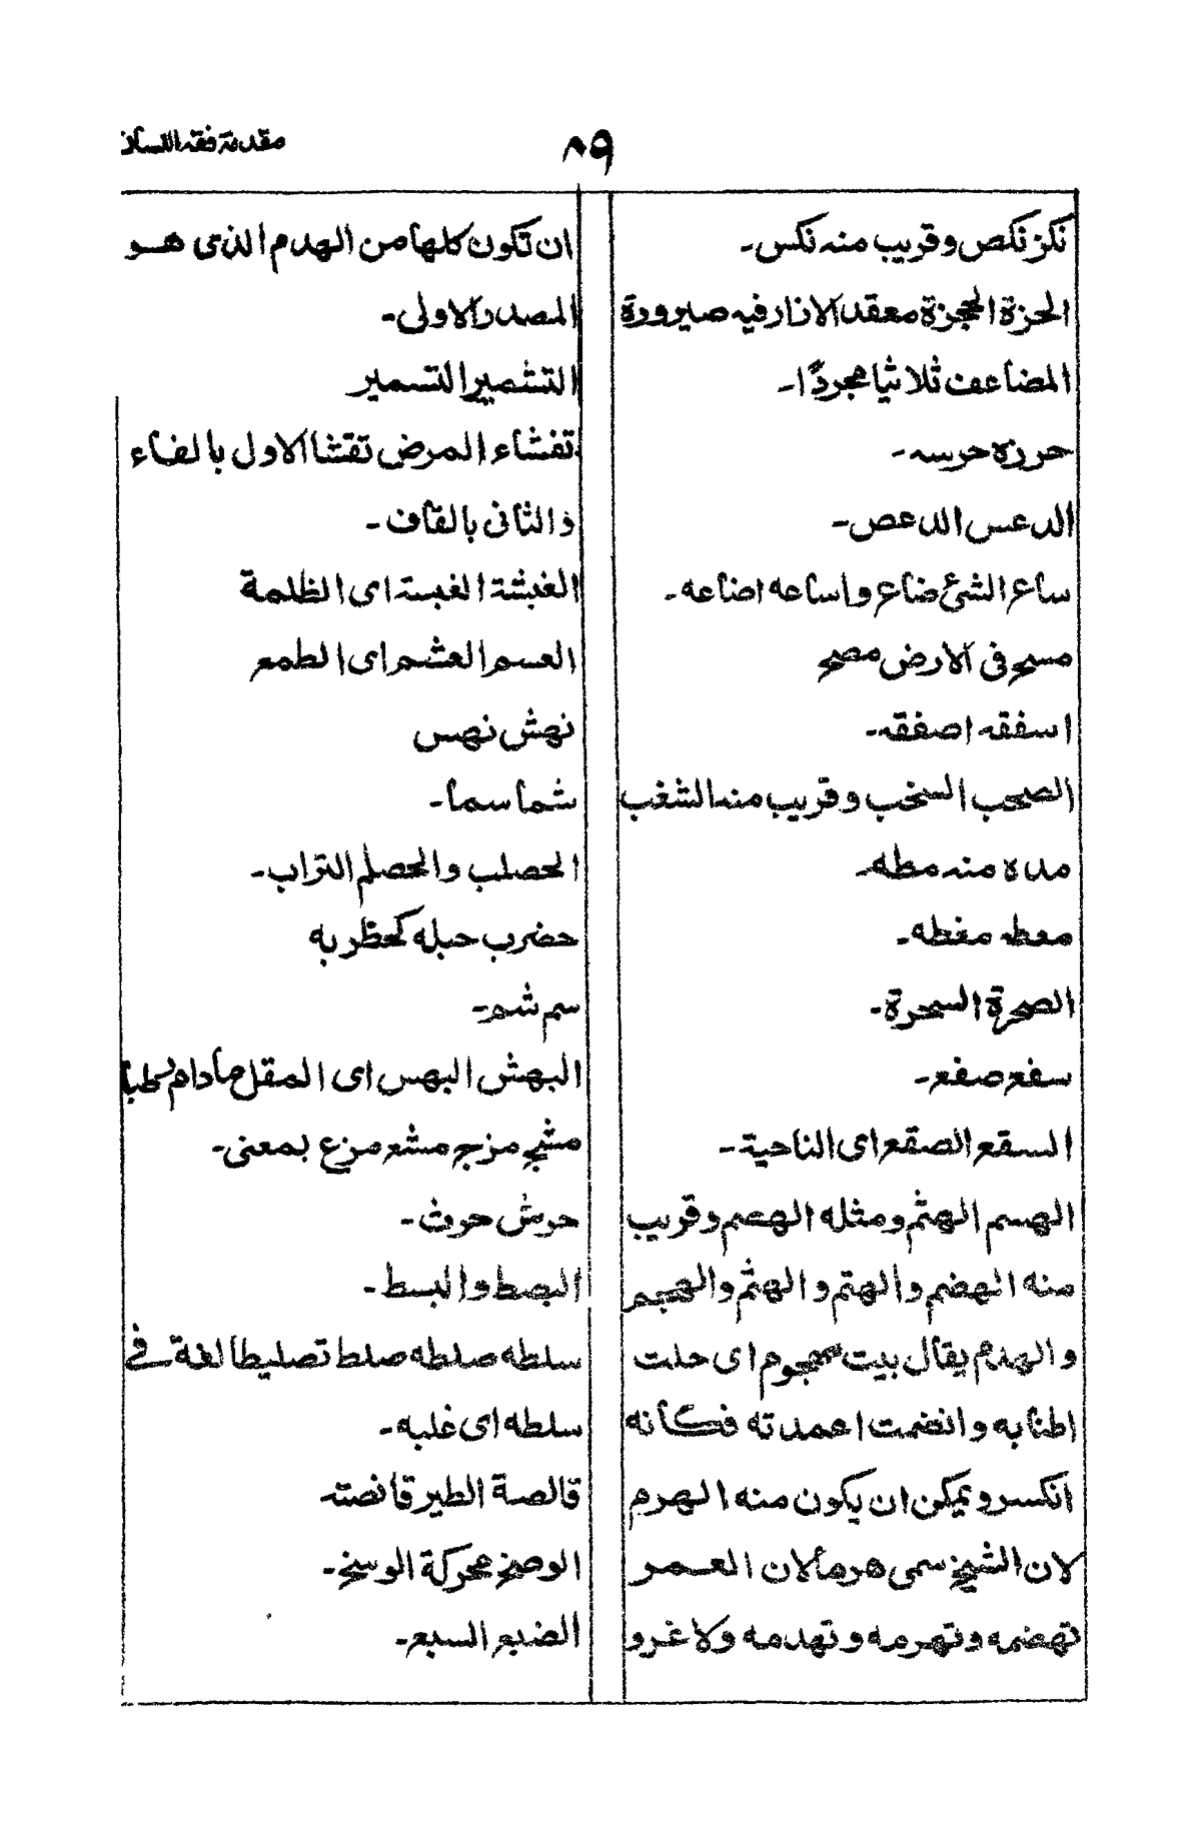 مقدمة فقه اللسان
٨٩
نكز نكص وقريب منه نكس۔
الحزة الحجزة معقد الازار فيه صيرورة
المضاعف ثلاثيا مجردًا۔
حرزه حرسه۔
الدعس الدعص۔
ساع الشئ ضاع واساعه اضاعه۔
مسح فى الارض مصح
اسفقه اصفقه۔
الصخب السخب وقريب منه الشغب
مده منه مطه
معطه مغطه۔
الصحرة السحرة۔
سفع صفع۔
السقع الصقع اى الناحية۔
الهسم الهثم ومثله الهصم وقريب
منه الهضم والهتم والهثم والهجم
والهدم يقال بيت مهجوم اى حلت
اطنابه وانضمت اعمدته فكأنه
انكسر ويمكن ان يكون منه الهرم
لان الشيخ سمى هرما لان العمر
تهضمه وتهرمه وتهدمه ولا غرو
ان تكون كلها من الهدم الذى هو
المصدر الاولى۔
التشمير التسمير
تفشاء المرض تقشا الاول بالفاء
والثانى بالقاف۔
الغبشة الغبسة اى الظلمة
العسم العشم اى الطمع
نهش نهس
شما سما۔
الحصلب والحصلم التراب۔
حضرب حبله كحظربه
سم شم۔
البهش البهس اى المقل مادام رطبا
مشج مزج مشع مزع بمعنى۔
حرش حرث۔
البصط والبسط۔
سلطه صلطه صلط تصليطا لغة فى
سلطه اى غلبه۔
قالصة الطير قانصته
الوصخ محركة الوسخ۔
الضبع السبع۔